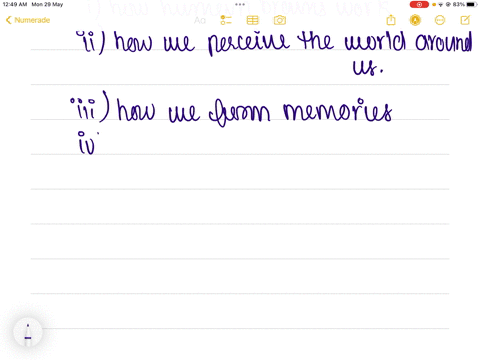 12:49 AM Mon 29 May
83%
Numerade
Aa
ii) how we perceive the world around
us.
iii) how we form memories
iv